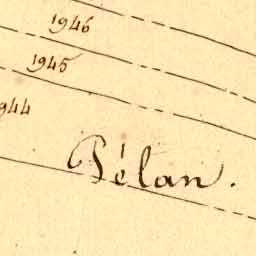 1946
1945
944
Pélan.